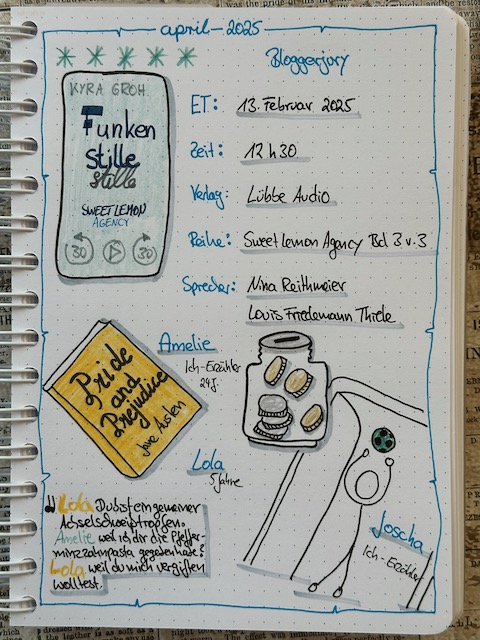 april - 2025
Bloggerjury
KYRA GROH
Funken
stille
stille
SWEET LEMON
AGENCY
30
30
ET: 13. Februar 2025
Zeit: 12 h 30
Verlag: Lübbe Audio
Reihe: Sweet Lemon Agency Bd 3 v. 3
Sprecher: Nina Reithmeier
Louis Friedemann Thiele
Pride
and
Prejudice
Jane Austen
Amelie
Ich-Erzähler
29 J.
Lola
5 Jahre
Joscha
Ich-Erzähler
Lola Du bist ein gemeiner
Achselschweiptropfen.
Amelie weil ich dir die Pfeffer-
minzzahnpasta gegeben habe?
Lola weil du mich vergiften
wolltest.